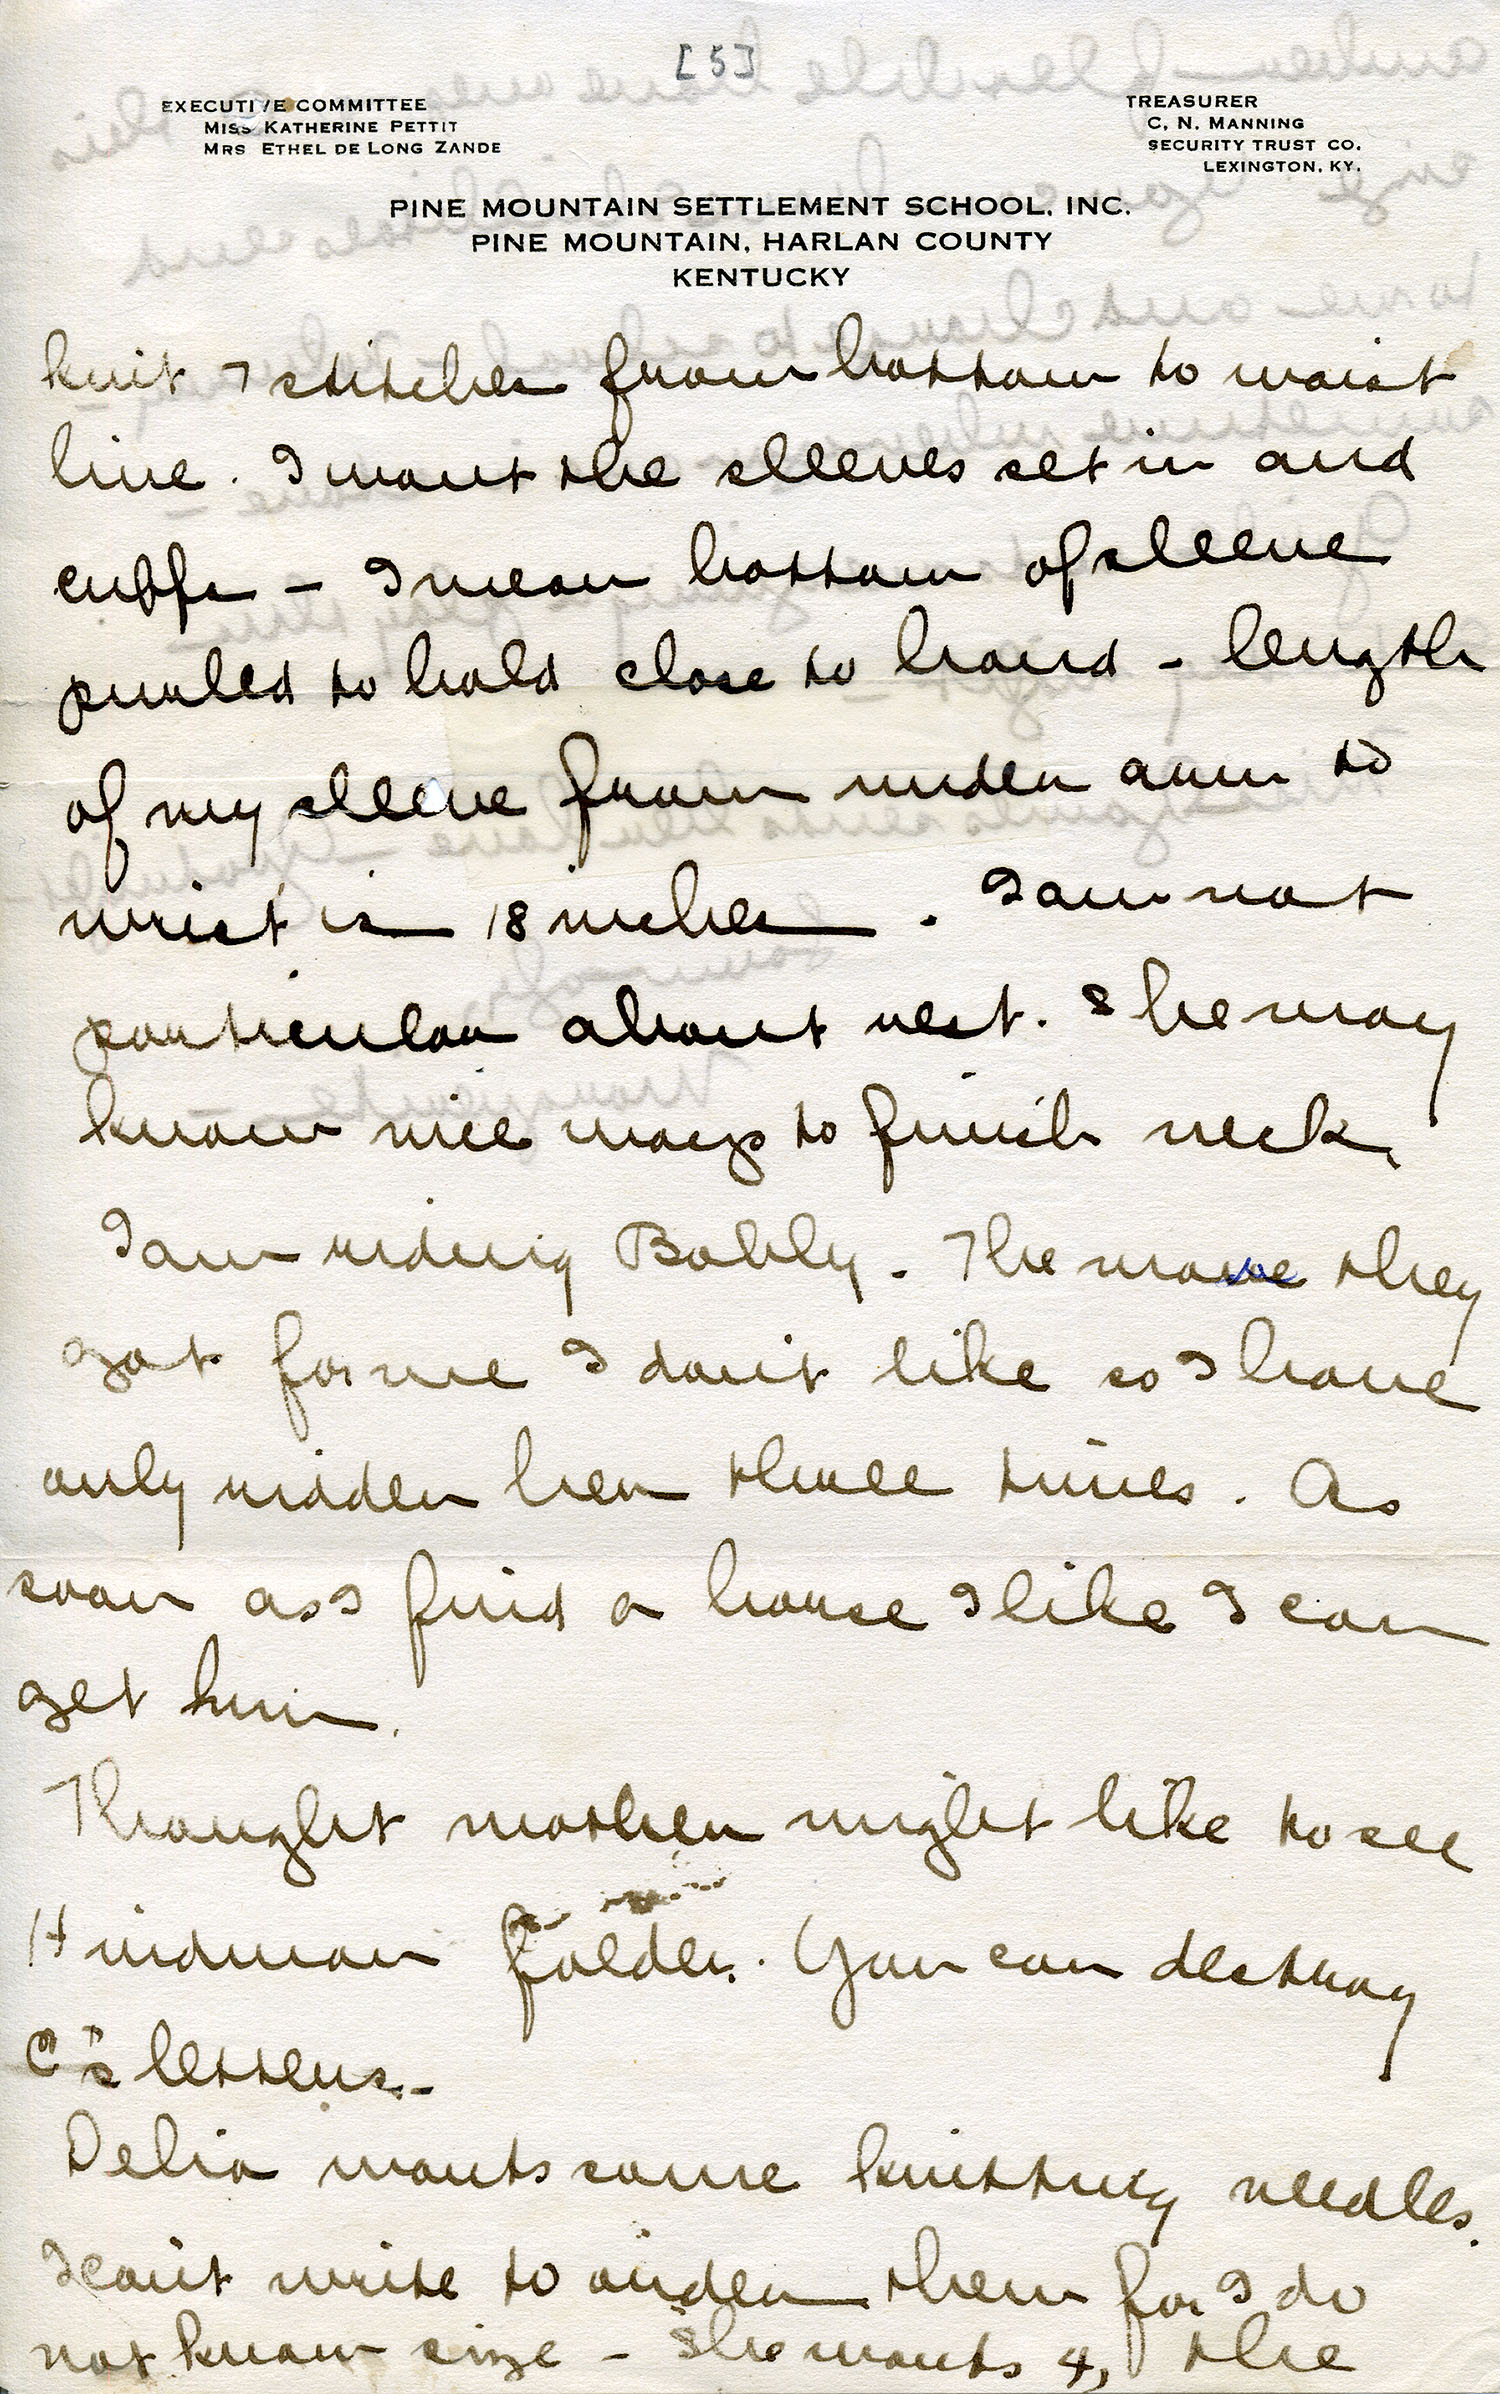 [5]
EXECUTIVE COMMITTEE
MISS KATHERINE PETTIT
MRS ETHEL DE LONG ZANDE
TREASURER
C. N. MANNING
SECURITY TRUST CO.
LEXINGTON, KY.
PINE MOUNTAIN SETTLEMENT SCHOOL, INC.
PINE MOUNTAIN, HARLAN COUNTY
KENTUCKY
knit 7 stitches from bottom to waist
line. I want the sleeves set in and
cuffs – I mean bottom of sleeve
purled to hold close to hand – length
of my sleeve from under arm to
wrist is 18 inches. I am not
particular about rest. She may
know nice ways to finish neck.
I am riding Bobby. The mare they
got for me I don't like so I have
only ridden her three times. As
soon as I find a horse I like I can
get him.
Thought mother might like to see
Hindman folder. You can destroy
C's letters. –
Delia wants some knitting needles.
I can't write to order them for I do
not know size – She wants 4, the